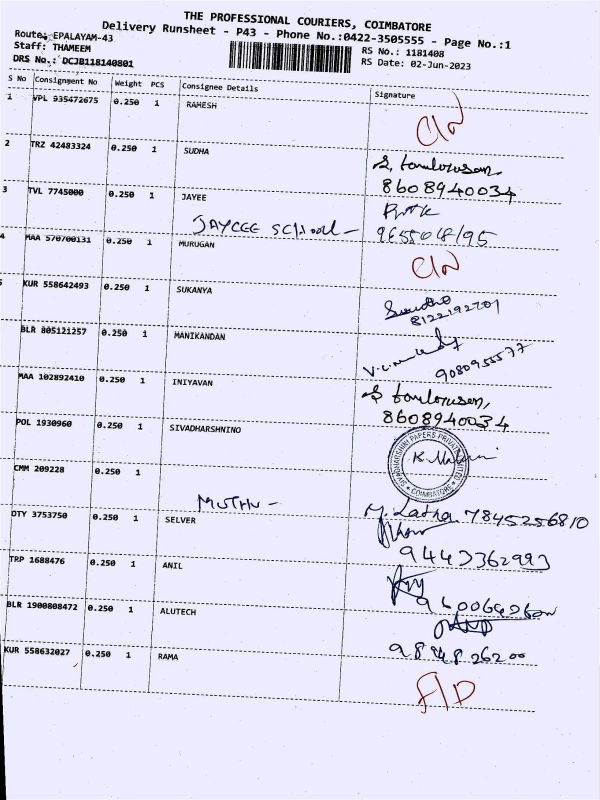 THE PROFESSIONAL COURIERS, COIMBATORE
Delivery Runsheet - P43 - Phone No.:0422-3505555 - Page No.:1
Route: EPALAYAM-43
Staff: THAMEEM
RS No.: 1181408
DRS No.: DCJB118140801
RS Date: 02-Jun-2023
S No Consignment No Weight PCS Consignee Details Signature
1 VPL 935472675 0.250 1 RAHESH
2 TRZ 42483324 0.250 1 SUDHA
8608940034
3 TVL 7745000 0.250 1 JAYEE
JAYCEE SCHOOL -
4 MAA 570700131 0.250 1 MURUGAN
KUR 558642493 0.250 1 SUKANYA
8122192701
BLR 805121257 0.250 1 MANIKANDAN
9080955577
MAA 102892410 0.250 1 INIYAVAN
8608940034
POL 1930960 0.250 1 SIVADHARSHNINO
SIVADHARSHINI PAPERS PRIVATE LIMITED
COIMBATORE
CMM 209228 0.250 1
MUTHU -
M. Latha 7845256810
DTY 3753750 0.250 1 SELVER
9443362993
TRP 1688476 0.250 1 ANIL
BLR 1900808472 0.250 1 ALUTECH
9848426200
KUR 558632027 0.250 1 RAMA
F/D